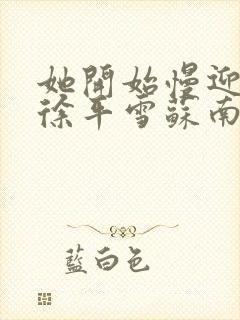 她開始慢迎
徐年雪蘇南
藍白色